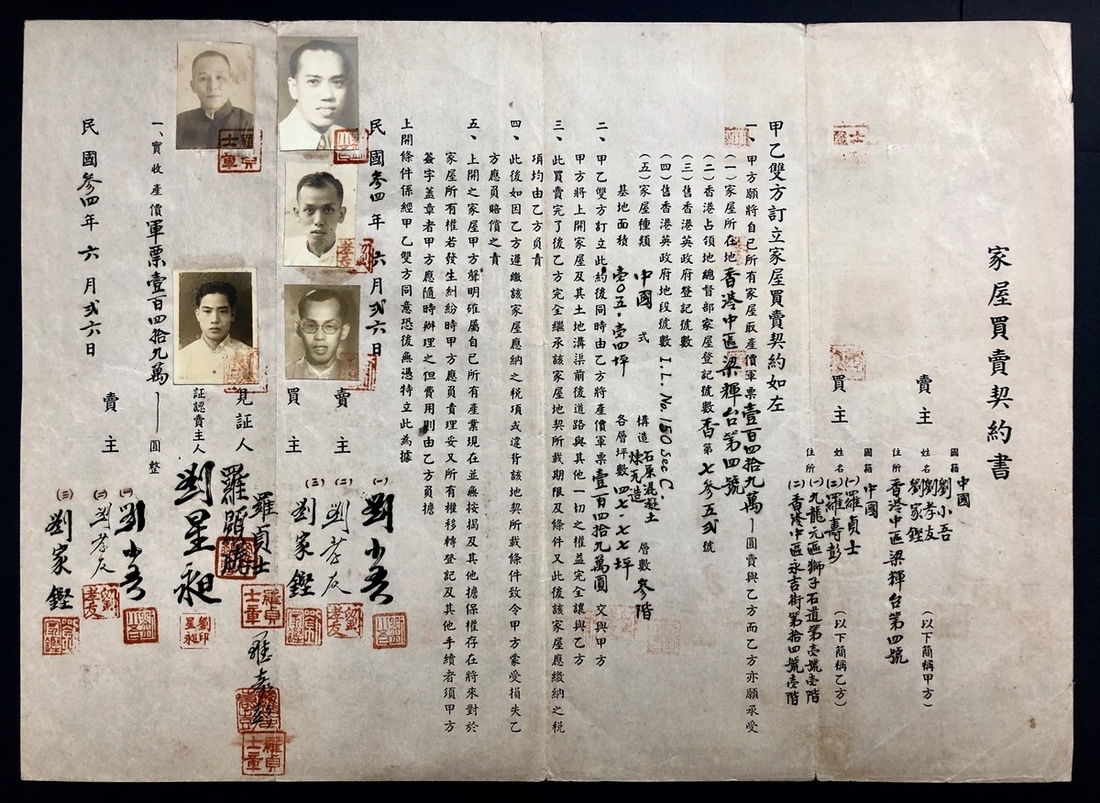 家屋買賣契約書
國籍 中國
賣主 姓名 劉小吾 劉孝友 劉家鏗 (以下簡稱甲方)
住所 香港中區梁輝台第四號
國籍 中國
買主 姓名 (一)羅貞士 (二)羅壽彭 (以下簡稱乙方)
住所 (一)九龍元區獅子石道第壹號壹階 (二)香港中區永吉街第拾四號壹階
甲乙雙方訂立家屋買賣契約如左
一、甲方願將自已所有家屋取產價軍票壹百四拾九萬圓賣與乙方而乙方亦願承受
(一)家屋所在地 香港中區梁輝台第四號
(二)香港占領地總督部家屋登記號數 香第七參五弍號
(三)舊香港英政府登記號數
(四)舊香港英政府地段號數 I.L. No. 150 Sec C.
(五)家屋種類 中國式 構造 石屎混凝土煉瓦造 層數 參階
基地面積 壹〇五·壹四坪 各層坪數 四七·七七坪
二、甲乙雙方訂立此約後同時由乙方將產價軍票壹百四拾九萬圓交與甲方
甲方將上開家屋及其土地溝渠前後道路與其他一切之權益完全讓與乙方
三、此買賣完了後乙方完全繼承該家屋地契所載期限及條件又此後該家屋應繳納之税
項均由乙方負責
四、此後如因乙方遲繳該家屋應納之税項或違背該地契所載條件致令甲方蒙受損失乙
方應負賠償之責
五、上開之家屋甲方聲明確屬自已所有產業現在並無按揭及其他擔保權存在將來對於
家屋所有權若發生糾紛時甲方應負責理妥又所有權移轉登記及其他手續者須甲方
簽字蓋章者甲方應隨時辦理之但費用則由乙方負擔
上開條件係經甲乙雙方同意恐後無憑特立此為據
民國參四年六月弍六日
賣主 (一)劉小吾 (二)劉孝友 (三)劉家鏗
買主 羅貞士 羅壽彭
見証人 羅顯勝
証認賣主人 劉星昶
一、實收產價軍票壹百四拾九萬圓整
民國參四年六月弍六日
賣主 (一)劉小吾 (二)劉孝友 (三)劉家鏗